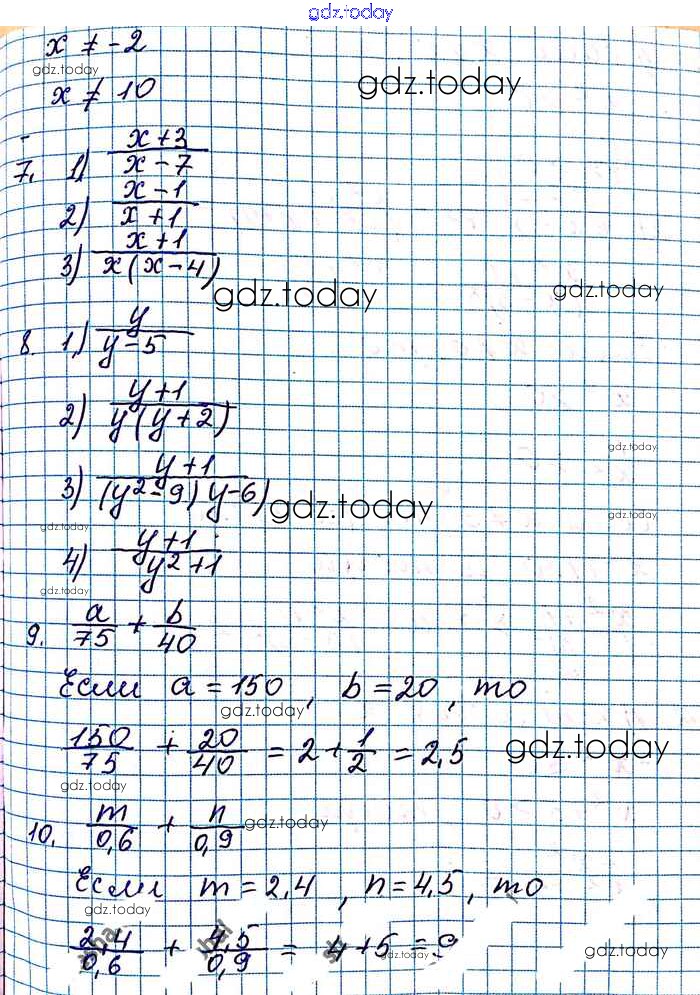 gdz.today
x ≠ -2
gdz.today
x ≠ 10
gdz.today
7. 1) (x+3)/(x-7)
2) (x-1)/(x+1)
3) (x+1)/(x(x-4))
gdz.today
gdz.today
8. 1) y/(y-5)
2) (y+1)/(y(y+2))
gdz.today
3) (y+1)/((y²-9)y-6)
gdz.today
gdz.today
gdz.today
4) (y+1)/(y²+1)
gdz.today
9. a/75 + b/40
Если a=150, b=20, то
gdz.today
150/75 + 20/40 = 2+1/2 = 2,5
gdz.today
gdz.today
10. m/0,6 + n/0,9
gdz.today
Если m=2,4, n=4,5, то
gdz.today
2,4/0,6 + 4,5/0,9 = 4+5=9
gdz.today
gdz.today